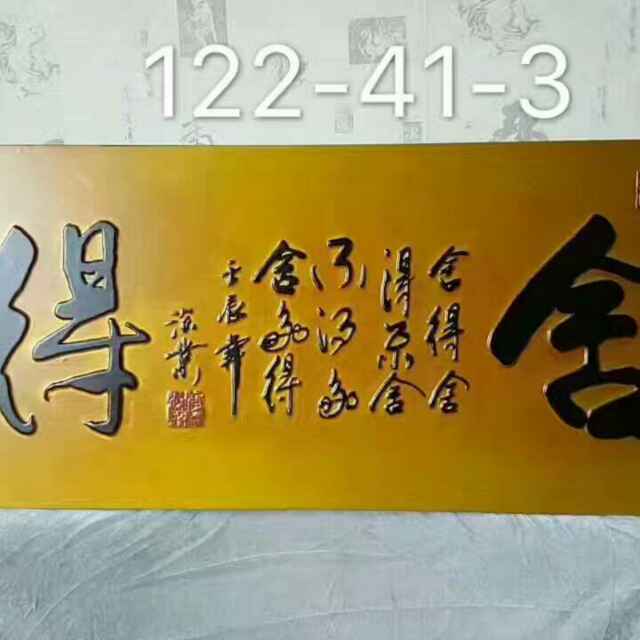 122-41-3
舍
舍得舍
得不舍
不得多
舍多得
壬辰年
得